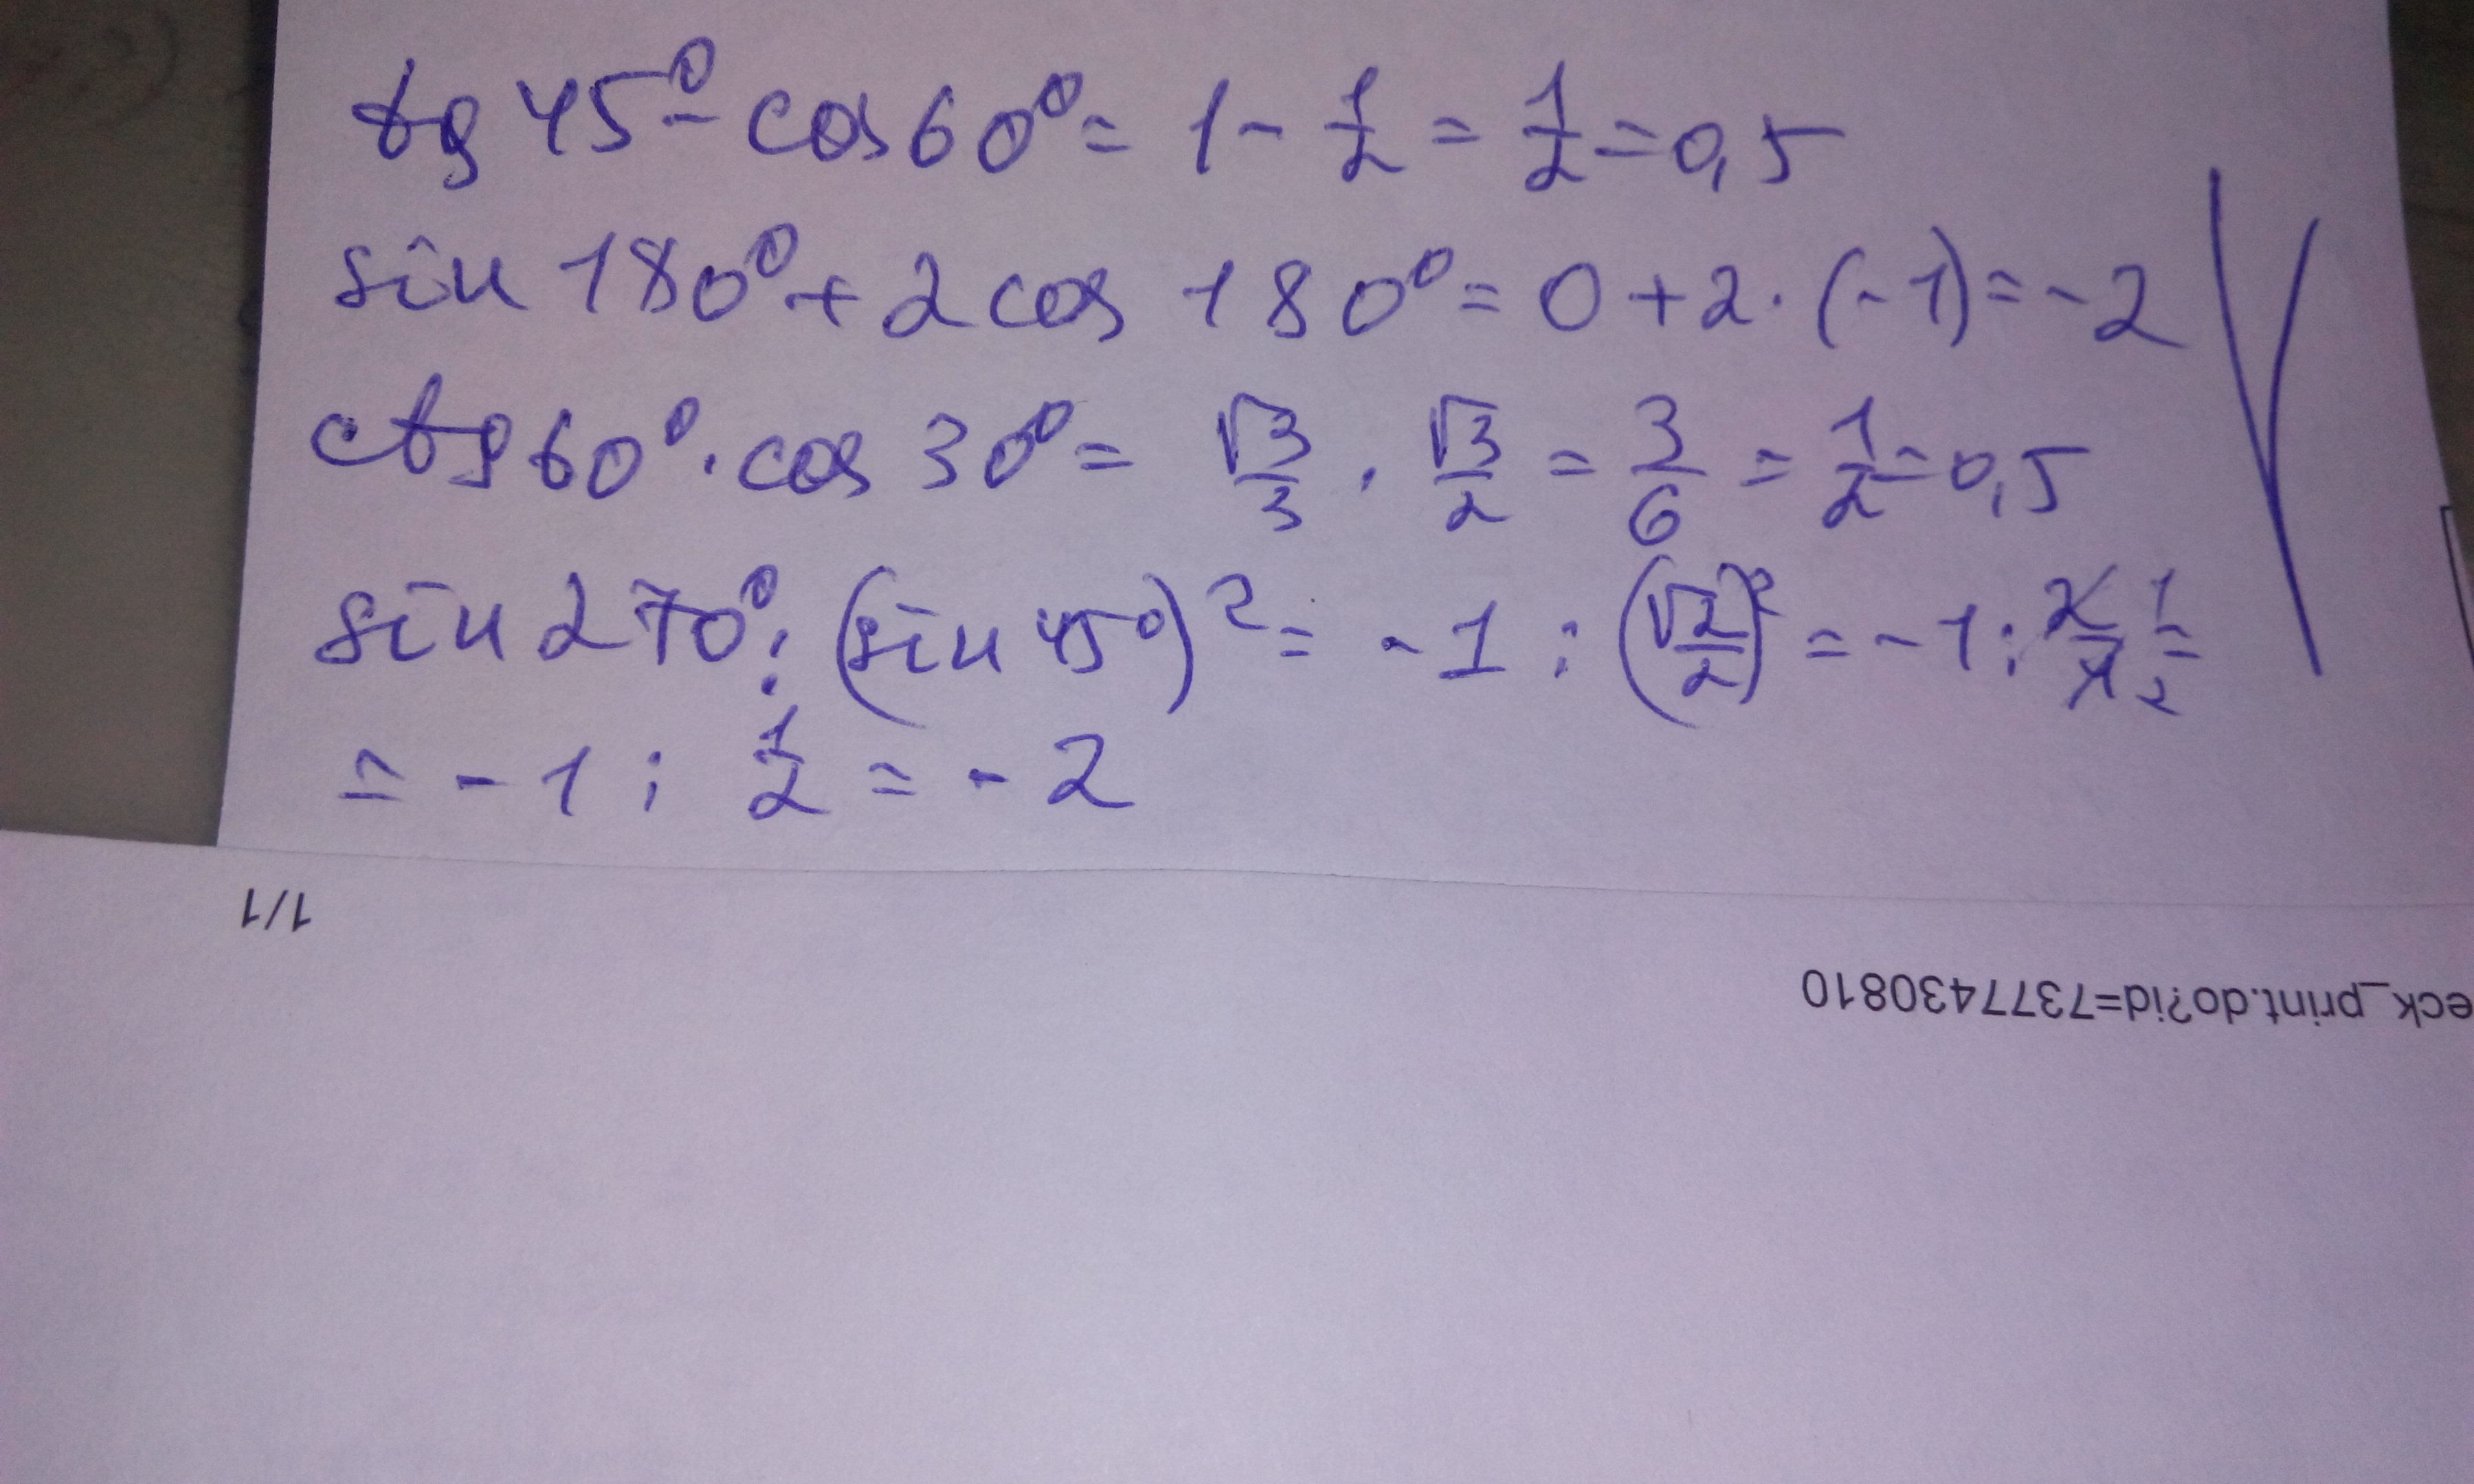 tg 45° - cos 60° = 1 - 1/2 = 1/2 = 0,5
sin 180° + 2 cos 180° = 0 + 2 · (-1) = -2
ctg 60° · cos 30° = √3/3 · √3/2 = 3/6 = 1/2 = 0,5
sin 270° : (sin 45°)² = -1 : (√2/2)² = -1 : 2/4 1/2 =
= -1 : 1/2 = -2
1/1
eck_print.do?id=7377430810